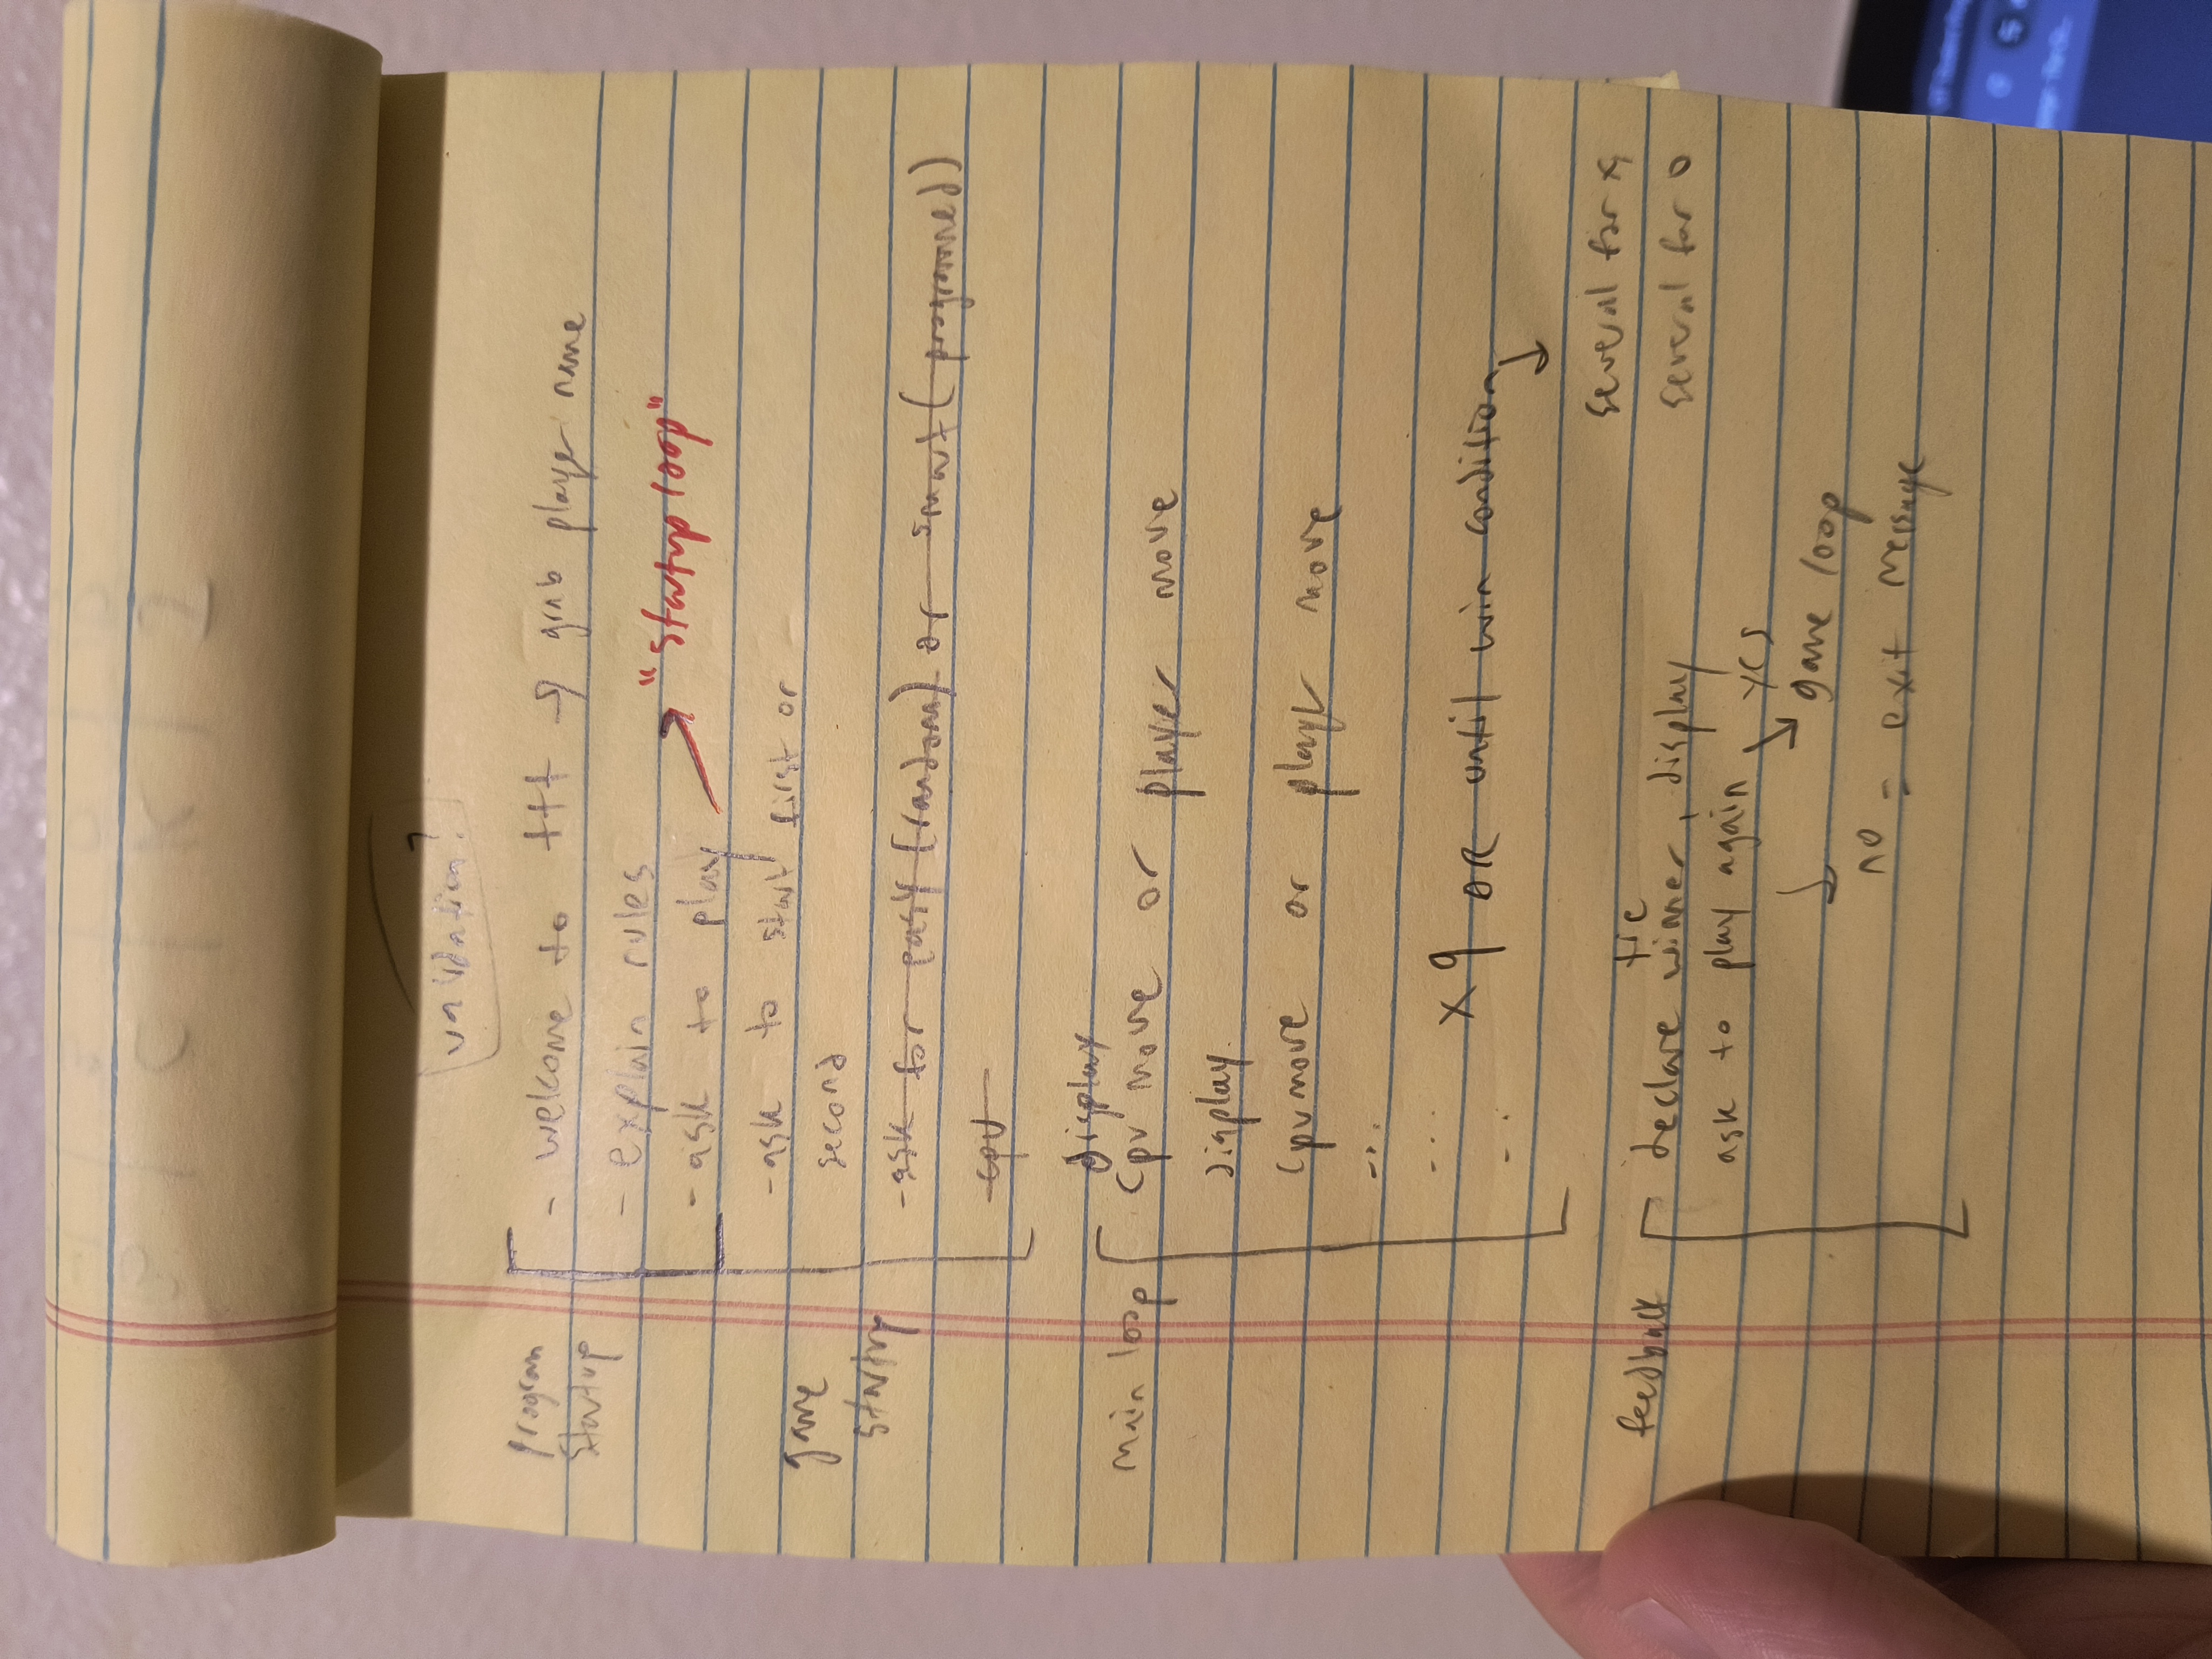 validation?
program
startup
- welcome to ttt → grab player name
- explain rules
"Startup loop"
- ask to play
game
startup
- ask to start first or
second
- ask for easy (random) or smart (programmed)
cpu
display
main loop
cpu move or player move
display.
cpu move or player move
...
...
x 9 OR until win condition
...
several for x,
several for o
feedback
tie
declare winner, display
ask to play again
yes
game loop
no = exit message